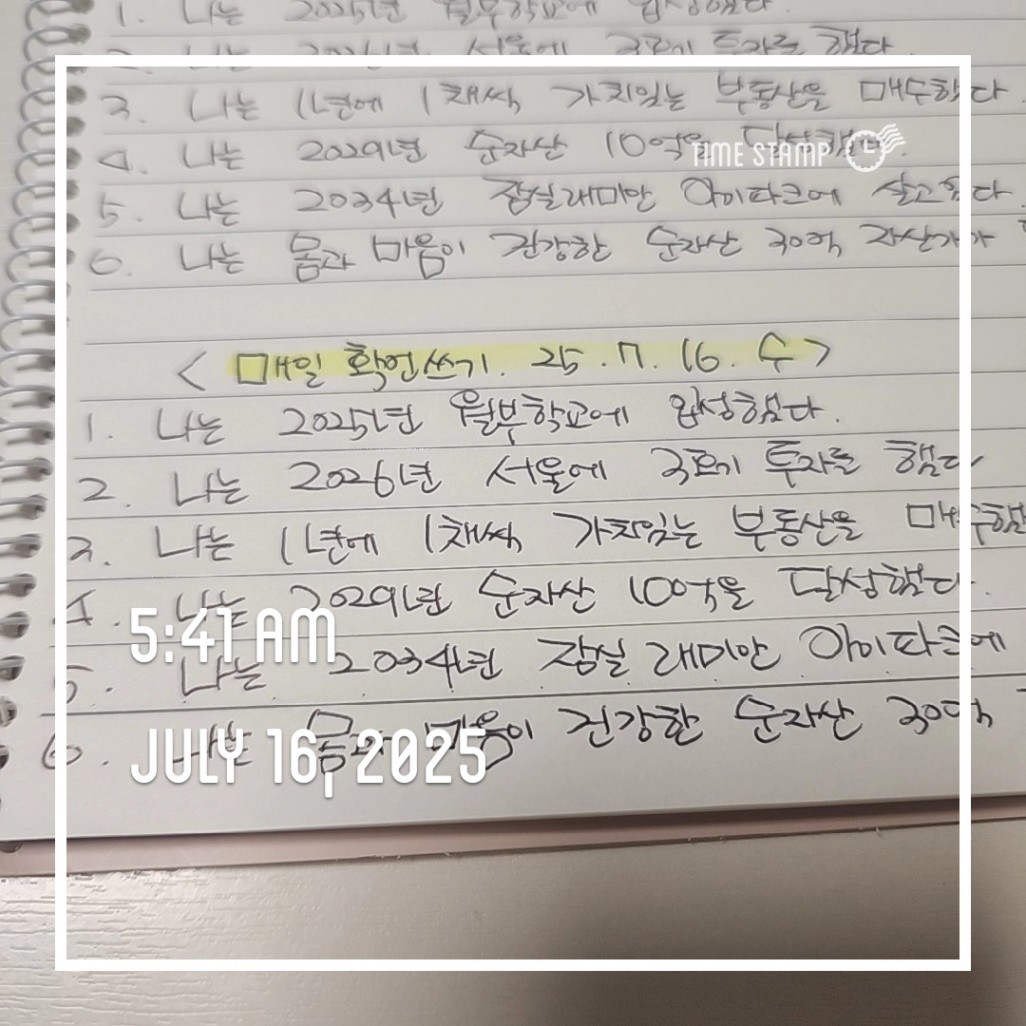 1. 나는 2025년 월부학교에 입성했다.
2. 나는 2026년 서울에 3호기 투자를 했다
3. 나는 1년에 1채씩 가치있는 부동산을 매수했다
TIME STAMP
4. 나는 2029년 순자산 10억을 달성했다.
5. 나는 2034년 잠실래미안 아이파크에 살고있다
6. 나는 몸과 마음이 건강한 순자산 30억 자산가가
< 매일 확언쓰기. 25.7.16. 수>
1. 나는 2025년 월부학교에 입성했다.
2. 나는 2026년 서울에 3호기 투자를 했다
3. 나는 1년에 1채씩 가치있는 부동산을 매수했
4. 나는 2029년 순자산 10억을 달성했다.
5:41 AM
5. 나는 2034년 잠실 래미안 아이파크에
6. 나는 몸과 마음이 건강한 순자산 30억
JULY 16, 2025